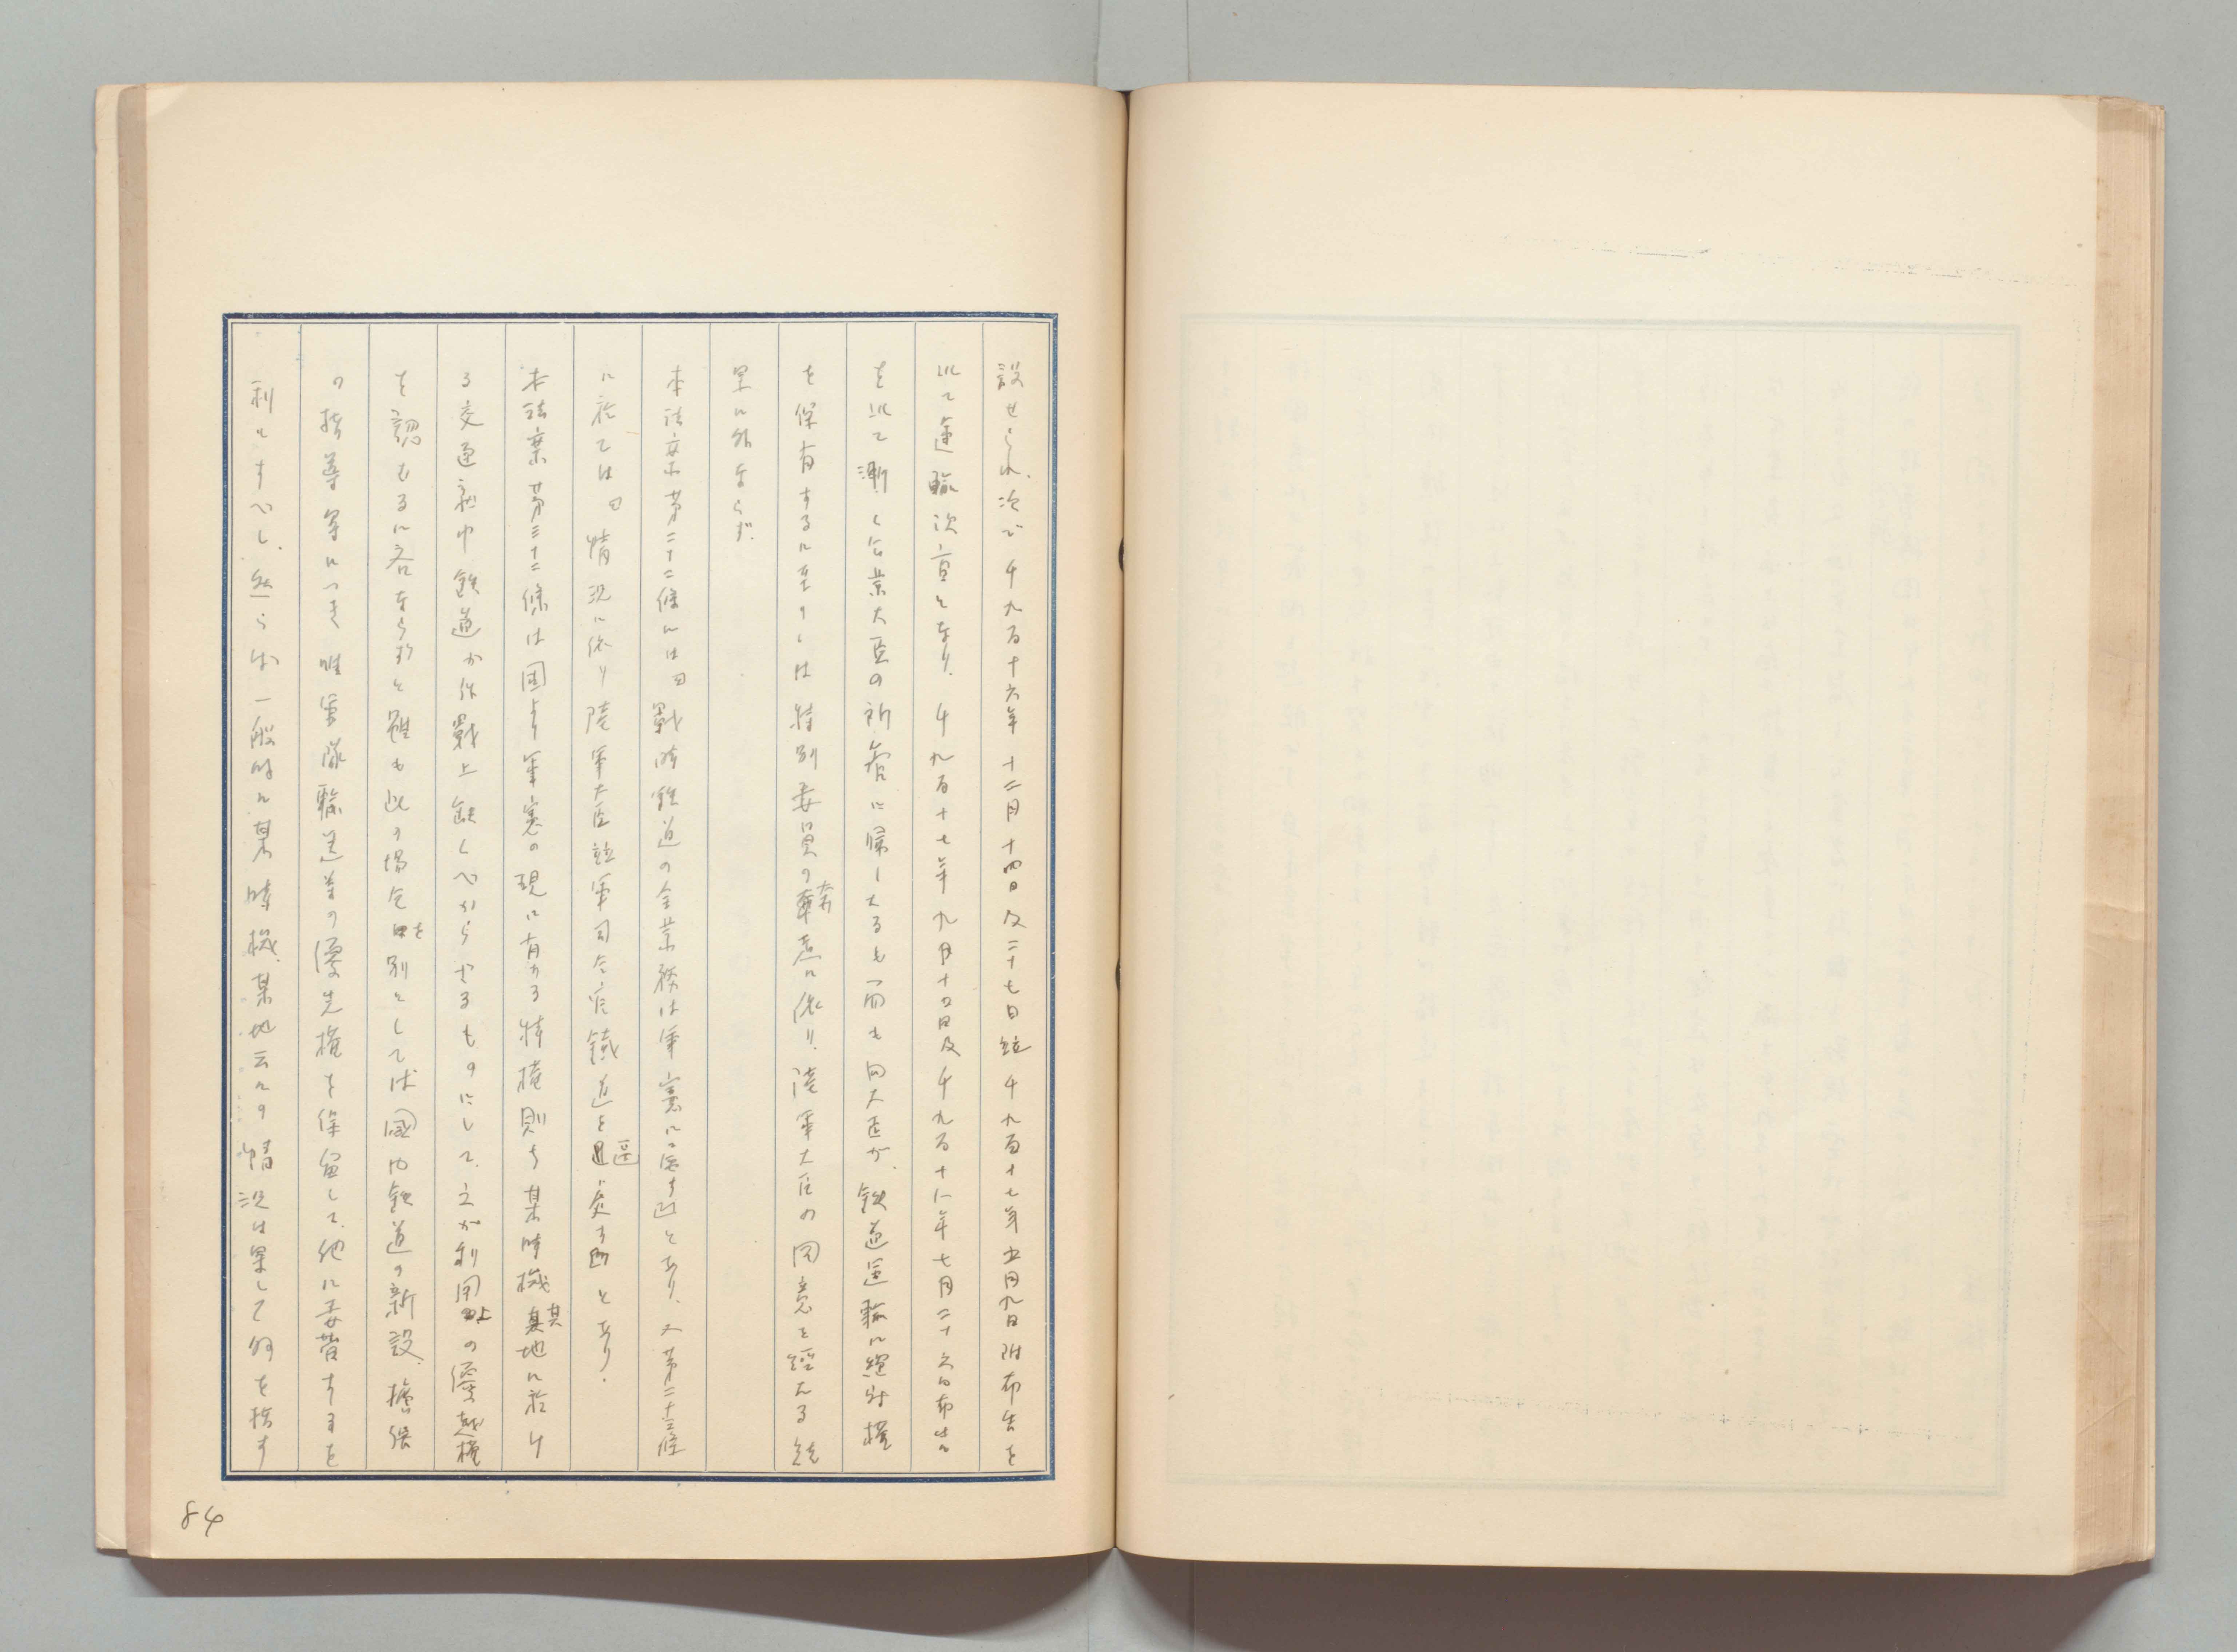 設せられ、次で千九百十六年十二月十四日及二十七日並千九百十七年五月九日附布告を
以て運輸次官となり、千九百十七年九月十日及千九百十八年七月二十六日布告
を以て漸く公業大臣の所管に帰したるも而も同大臣が、鉄道運輸に絶対権
を保有するに至りしは特別委員の奔走に依り、陸軍大臣の同意を経たる結
果に外ならず、
本法案第二十二條には曰 戦時鉄道の全業務は軍憲に属す と あり、又第二十三條
に於ては曰 情況に依り陸軍大臣並軍司令官鐵道を区處す と あり、
本法案第三十二條は固より軍憲の現に有する特権則ち某時機某地に於け
る交通就中鉄道か作戦上缺くへからさるものにして、之か利用上の優越権
を認むるに吝ならすと雖も此の場合を別としては國内鉄道の新設、擔保
の指導等につき唯軍隊輸送等の優先権を保留して、他に委譲するを
利とすへし、然らは一般的に某時機、某地云々の情況は果して何を指す
84